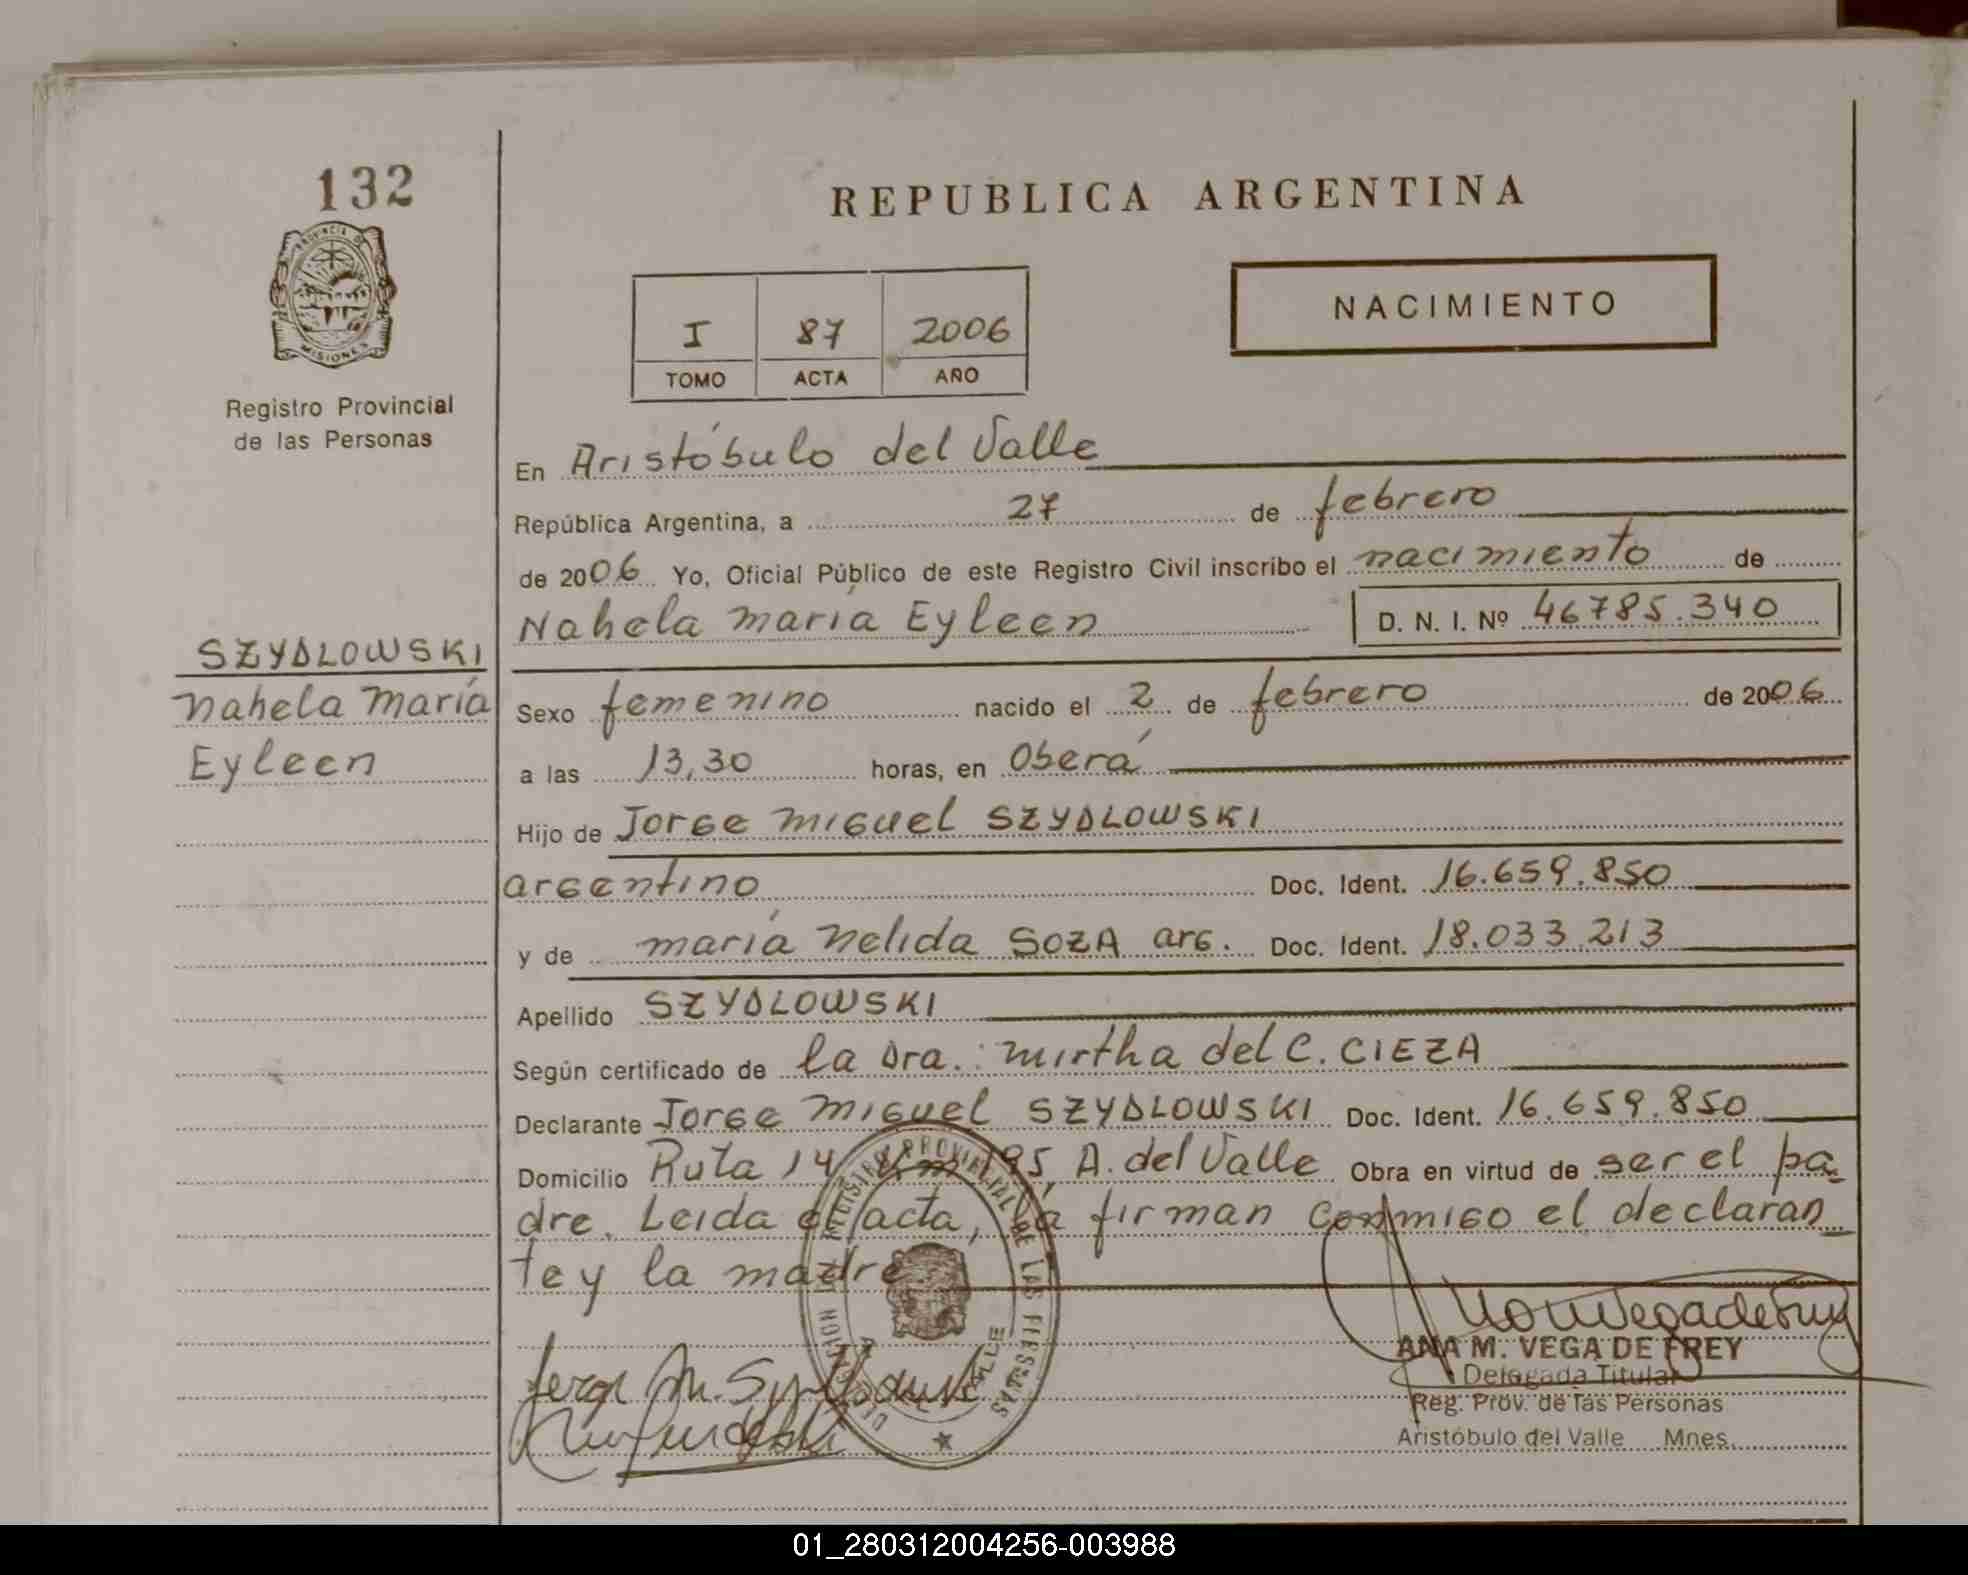 132
PROVINCIA DE
MISIONES
Registro Provincial
de las Personas
SZYDLOWSKI
Nahela María
Eyleen
REPUBLICA ARGENTINA
NACIMIENTO
I 87 2006
TOMO ACTA AÑO
En Aristóbulo del Valle
República Argentina, a 27 de febrero
de 2006 Yo, Oficial Público de este Registro Civil inscribo el nacimiento de
Nahela María Eyleen D. N. I. Nº 46785.340
Sexo femenino nacido el 2 de febrero de 2006
a las 13,30 horas, en Oberá
Hijo de Jorge Miguel SZYDLOWSKI
argentino Doc. Ident. 16.659.850
y de María Nelida SOZA arg. Doc. Ident. 18.033.213
Apellido SZYDLOWSKI
Según certificado de la Dra. Mirtha del C. CIEZA
Declarante Jorge Miguel SZYDLOWSKI Doc. Ident. 16.659.850
Domicilio Ruta 14 Km 195, A. del Valle Obra en virtud de ser el pa
dre. Leida el acta, la firman conmigo el declaran
te y la madre
REGISTRO PROVINCIAL DE LAS PERSONAS
ANA M. VEGA DE FREY
Delegada Titular
Reg. Prov. de las Personas
Aristóbulo del Valle Mnes.
01_280312004256-003988